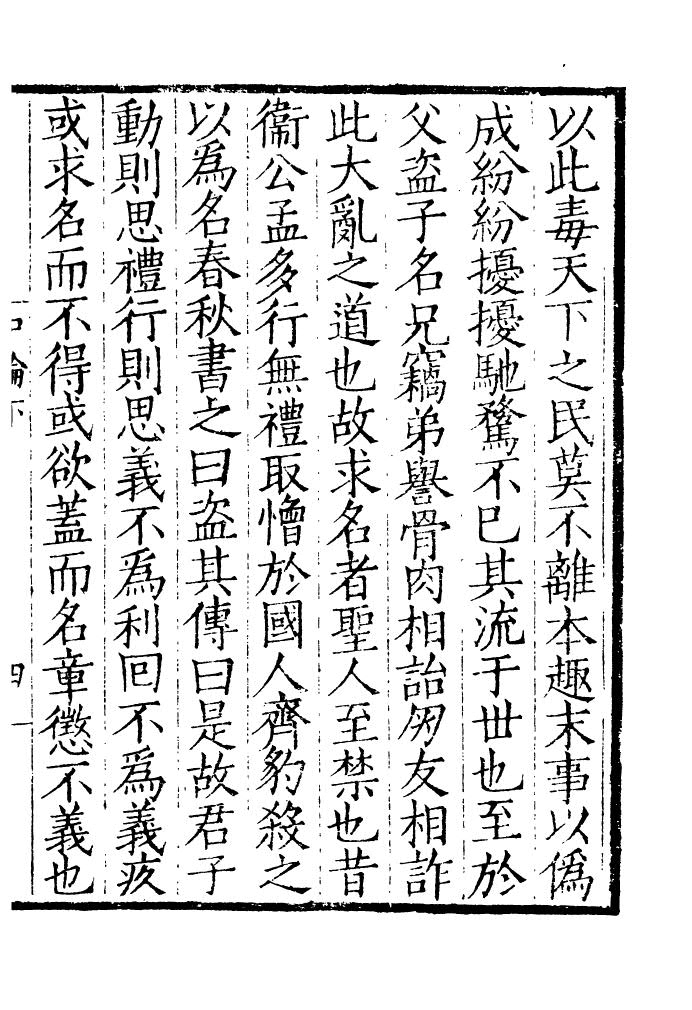 以此毒天下之民莫不離本趣末事以僞
成紛紛擾擾馳騖不已其流于世也至於
父盜子名兄竊弟譽骨肉相詒朋友相詐
此大亂之道也故求名者聖人至禁也昔
衞公孟多行無禮取憎於國人齊豹殺之
以爲名春秋書之曰盜其傳曰是故君子
動則思禮行則思義不爲利回不爲義疚
或求名而不得或欲蓋而名章懲不義也
中論下
四